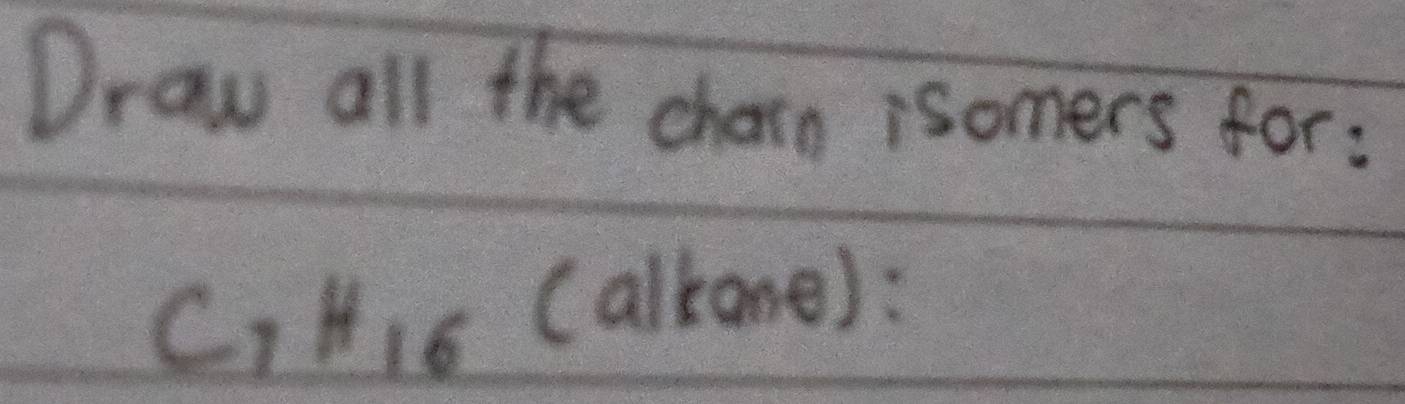 Draw all the chain isomers for:
C₇H₁₆ (alkane):